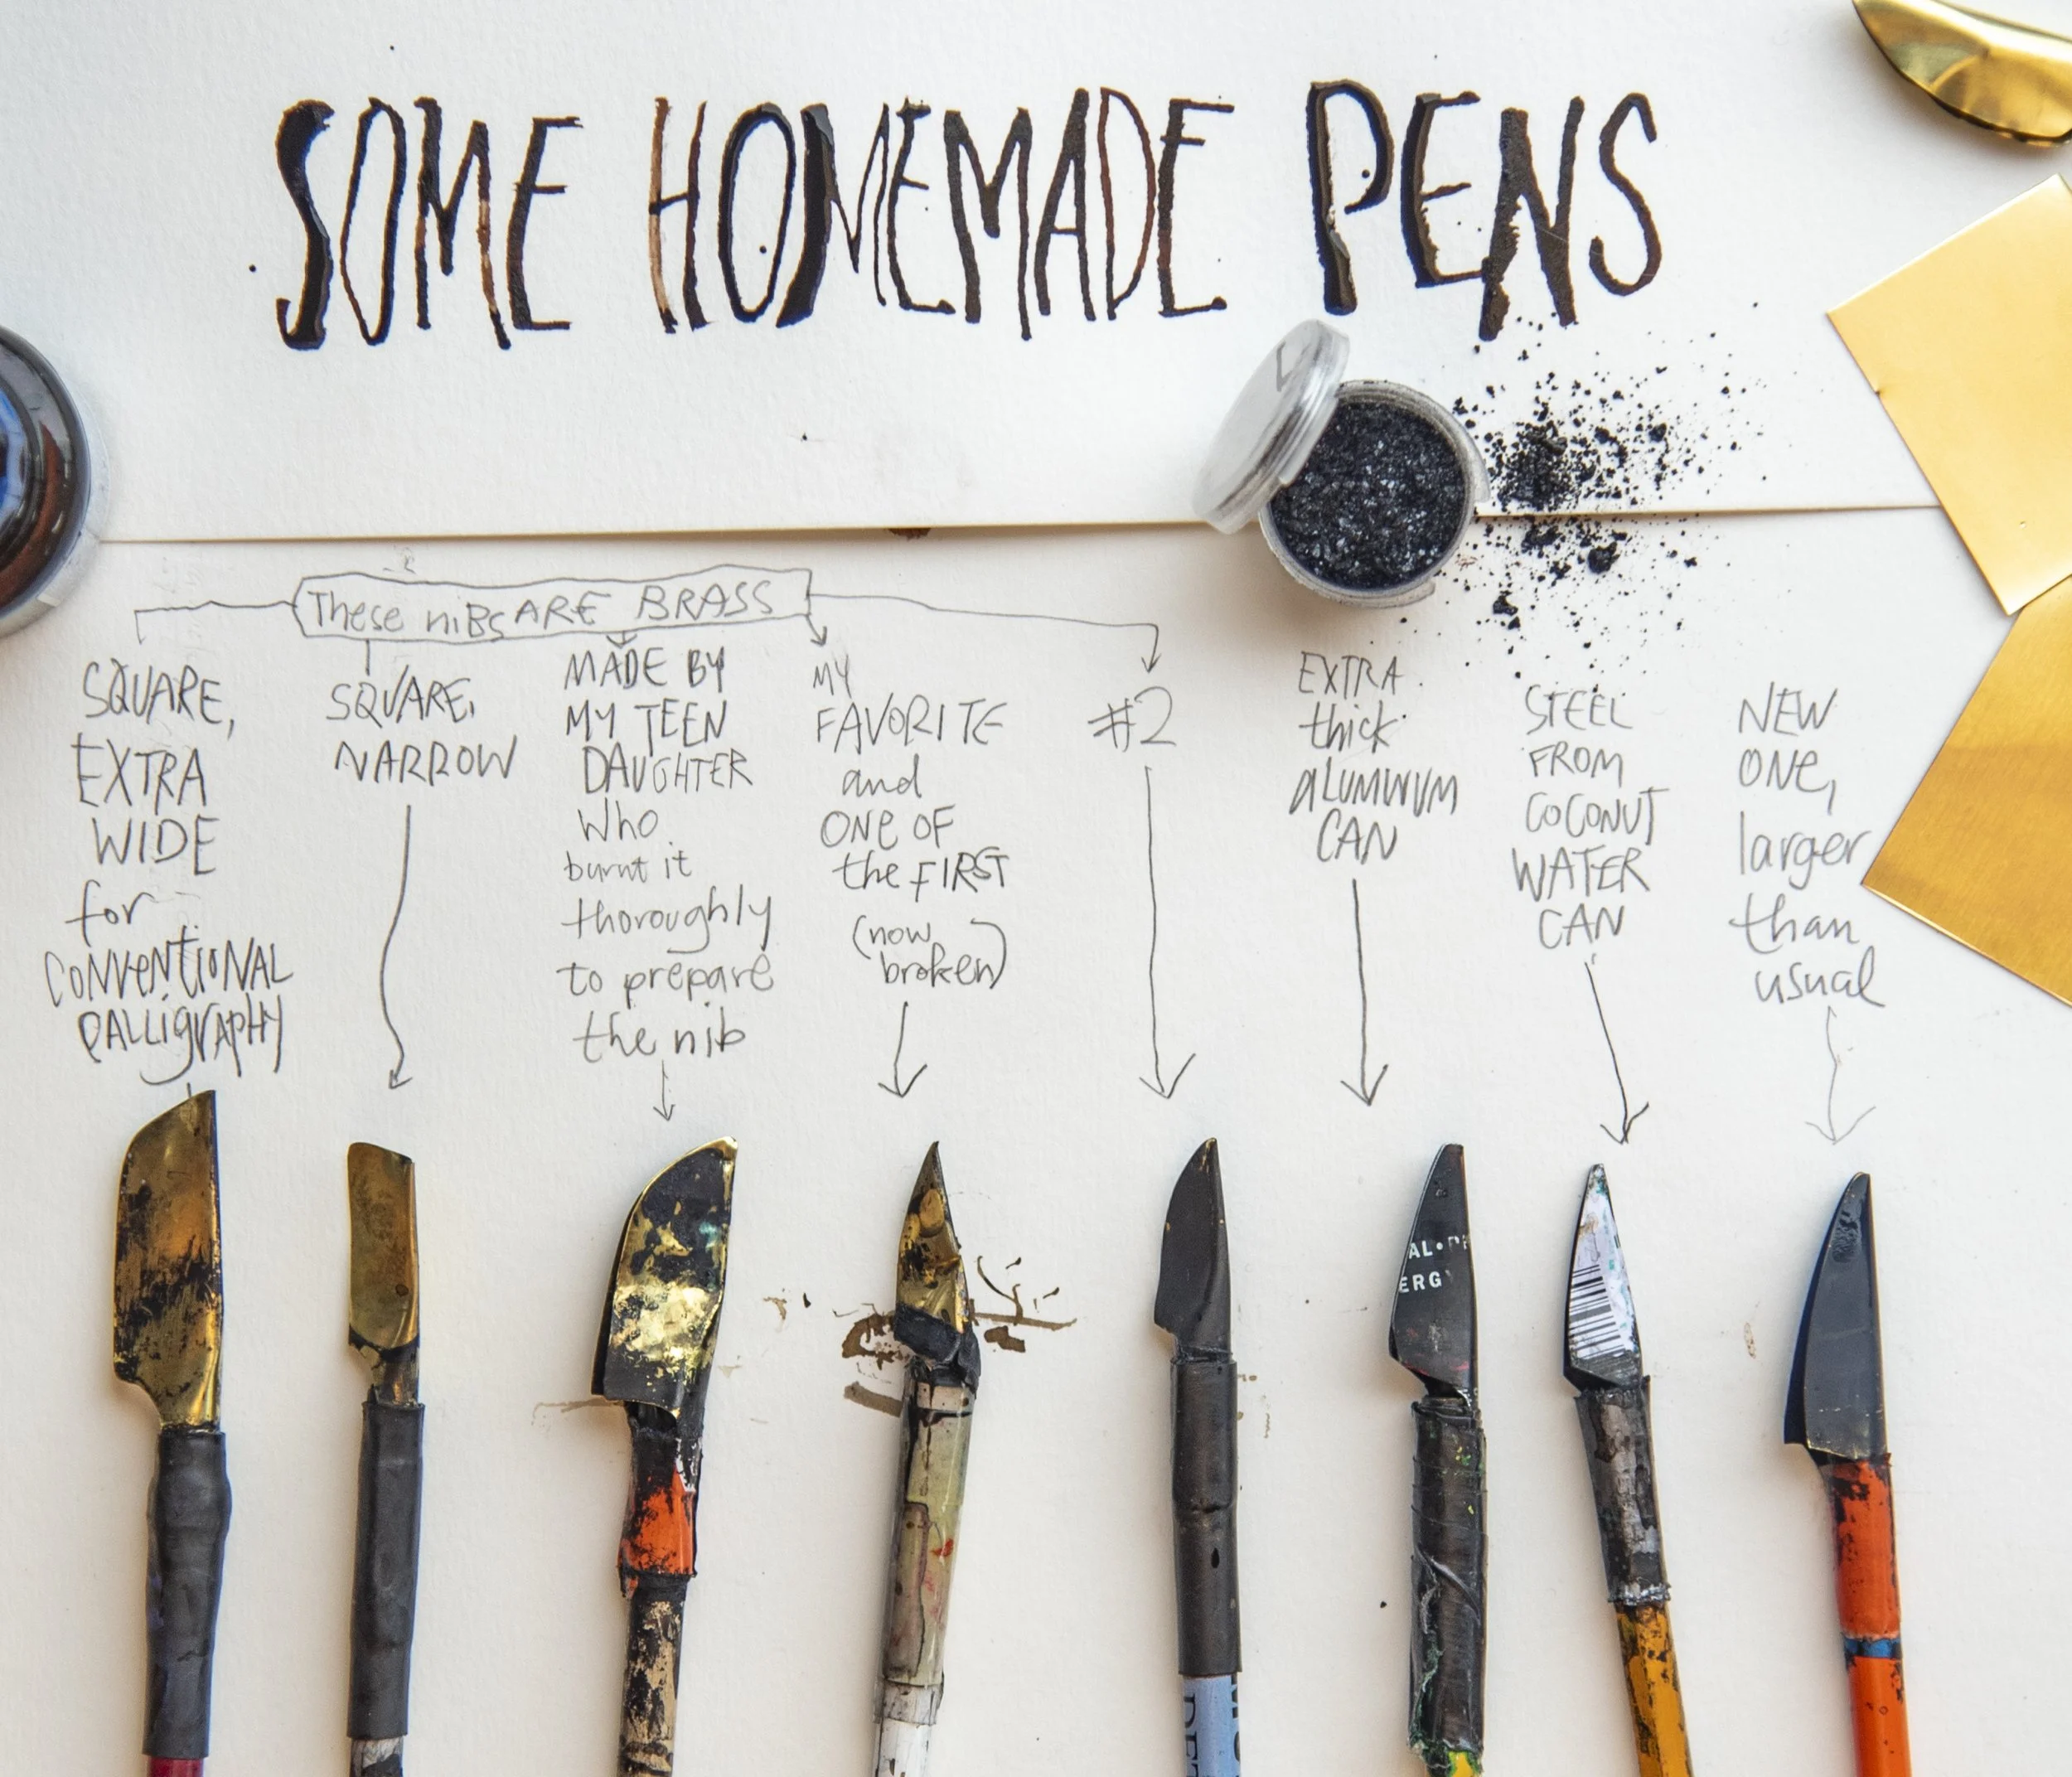 SOME HOMEMADE PENS
These niBs ARE BRASS
SQUARE,
EXTRA
WIDE
for
CONVENTIONAL
CALLIGRAPHY
SQUARE,
NARROW
MADE BY
MY TEEN
DAUGHTER
who
burnt it
thoroughly
to prepare
the nib
MY
FAVORITE
and
ONE OF
the FIRST
(now
broken)
#2
EXTRA
thick
ALUMINUM
CAN
STEEL
FROM
COCONUT
WATER
CAN
NEW
ONE,
larger
than
usual
AL•
ERGY